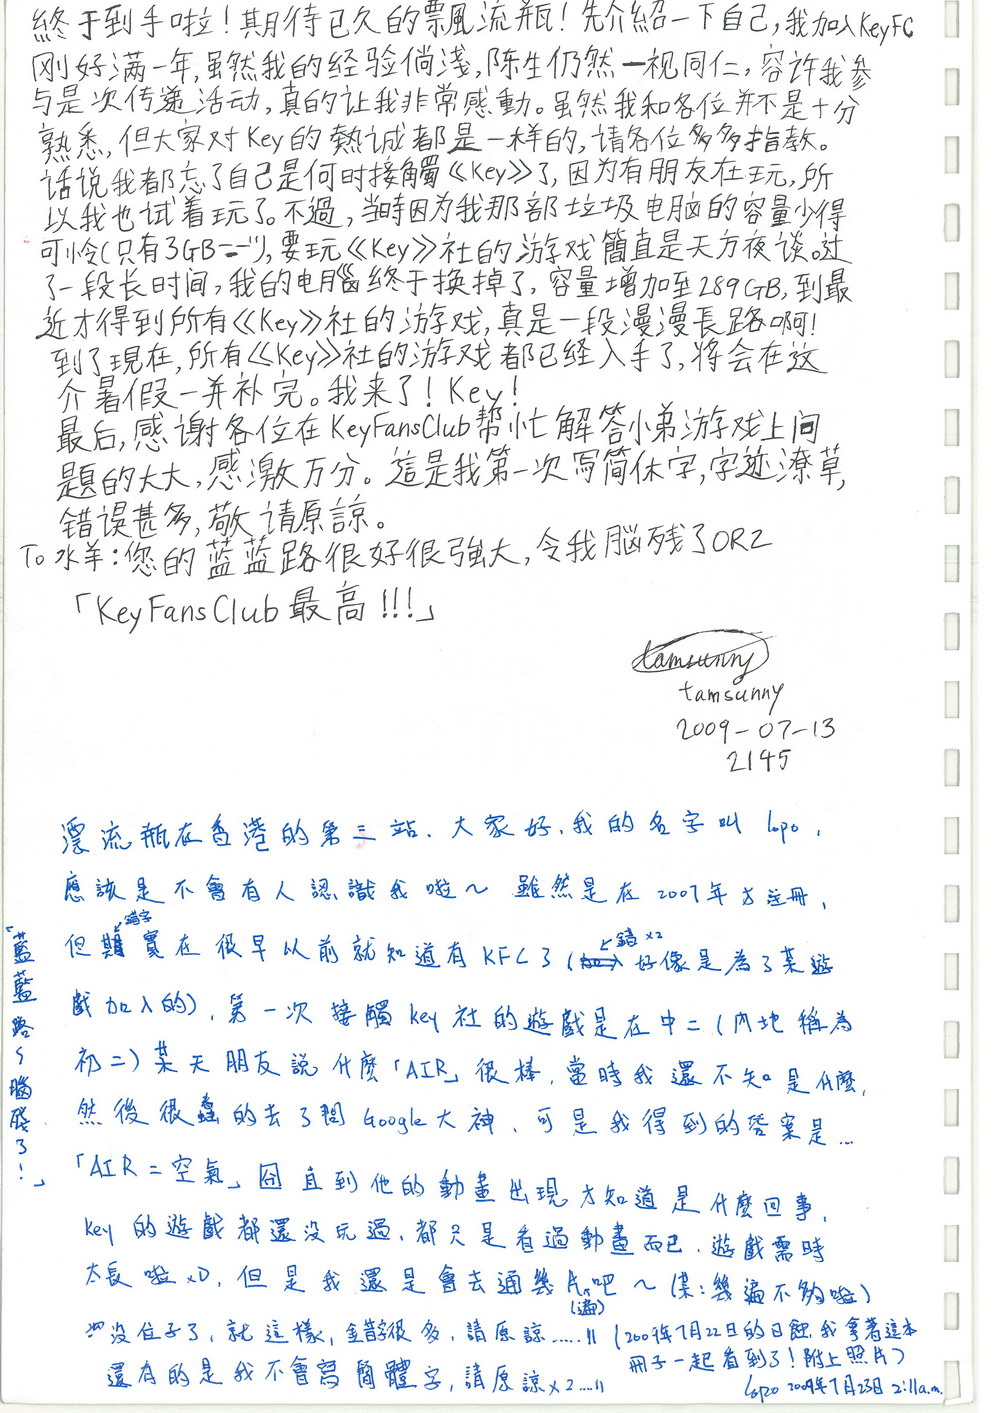 終于到手啦！期待已久的票風流瓶！先介紹一下自己，我加入KeyFC
刚好满一年，虽然我的经验倘淺，陈生仍然一视同仁，容许我参
与是次传递活动，真的让我非常感動。虽然我和各位并不是十分
熟悉，但大家对Key的熱诚都是一样的，请各位多多指教。
话说我都忘了自己是何时接觸《Key》了，因为有朋友在玩，所
以我也试着玩了。不過，当時因为我那部垃圾电脑的容量少得
可怜(只有3GB=="),要玩《Key》社的游戏簡直是天方夜谈。过
了一段长时间，我的电腦終于换掉了，容量增加至289GB，到最
近才得到所有《Key》社的游戏，真是一段漫漫長路啊！
到了現在，所有《Key》社的游戏都已经入手了，将会在这
个暑假一并补完。我来了！Key！
最后，感谢各位在KeyFansClub幫忙解答小弟游戏上问
題的大大，感激万分。這是我第一次写简体字，字迹潦草，
错误甚多，敬请原諒。
To 水羊：您的蓝蓝路很好很強大，令我脑残了ORZ
「KeyFansClub最高!!!」
tamsunny
tamsunny
2009-07-13
2145
漂流瓶在香港的第三站．大家好，我的名字叫lopo，
應該是不會有人認識我啦～ 雖然是在2007年才註冊，
錯字
但 實在很早以前就知道有KFC了( 好像是為了某遊
錯x2
戲加入的)，第一次接觸key社的遊戲是在中二(內地稱為
初二)某天朋友說什麼「AIR」很棒，當時我還不知是什麼，
然後很蠢的去了問Google大神，可是我得到的答案是…
「AIR=空氣」囧 直到他的動畫出現才知道是什麼回事，
key的遊戲都還沒玩過，都只是看過動畫而已，遊戲需時
太長啦xD，但是我還是會去通幾 吧～(某:幾遍不夠啦)
(遍)
沒位子了，就這樣，錯字很多，請原諒.....!! (2009年7月22日的日蝕，我拿著這本
冊子一起看到了！附上照片)
還有的是我不會寫簡體字，請原諒x2....!!
lopo 2009年7月23日 2:11a.m.
「藍藍路～腦殘了！」